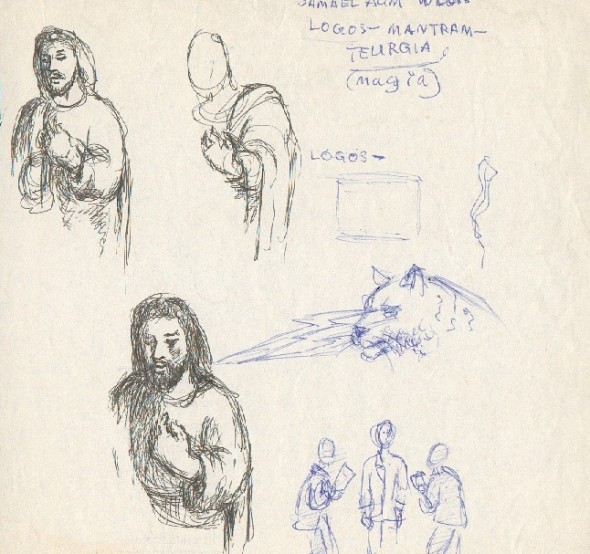 SAMAEL AUM
LOGOS- MANTRAM-
TEURGIA
(magia)
LOGOS-